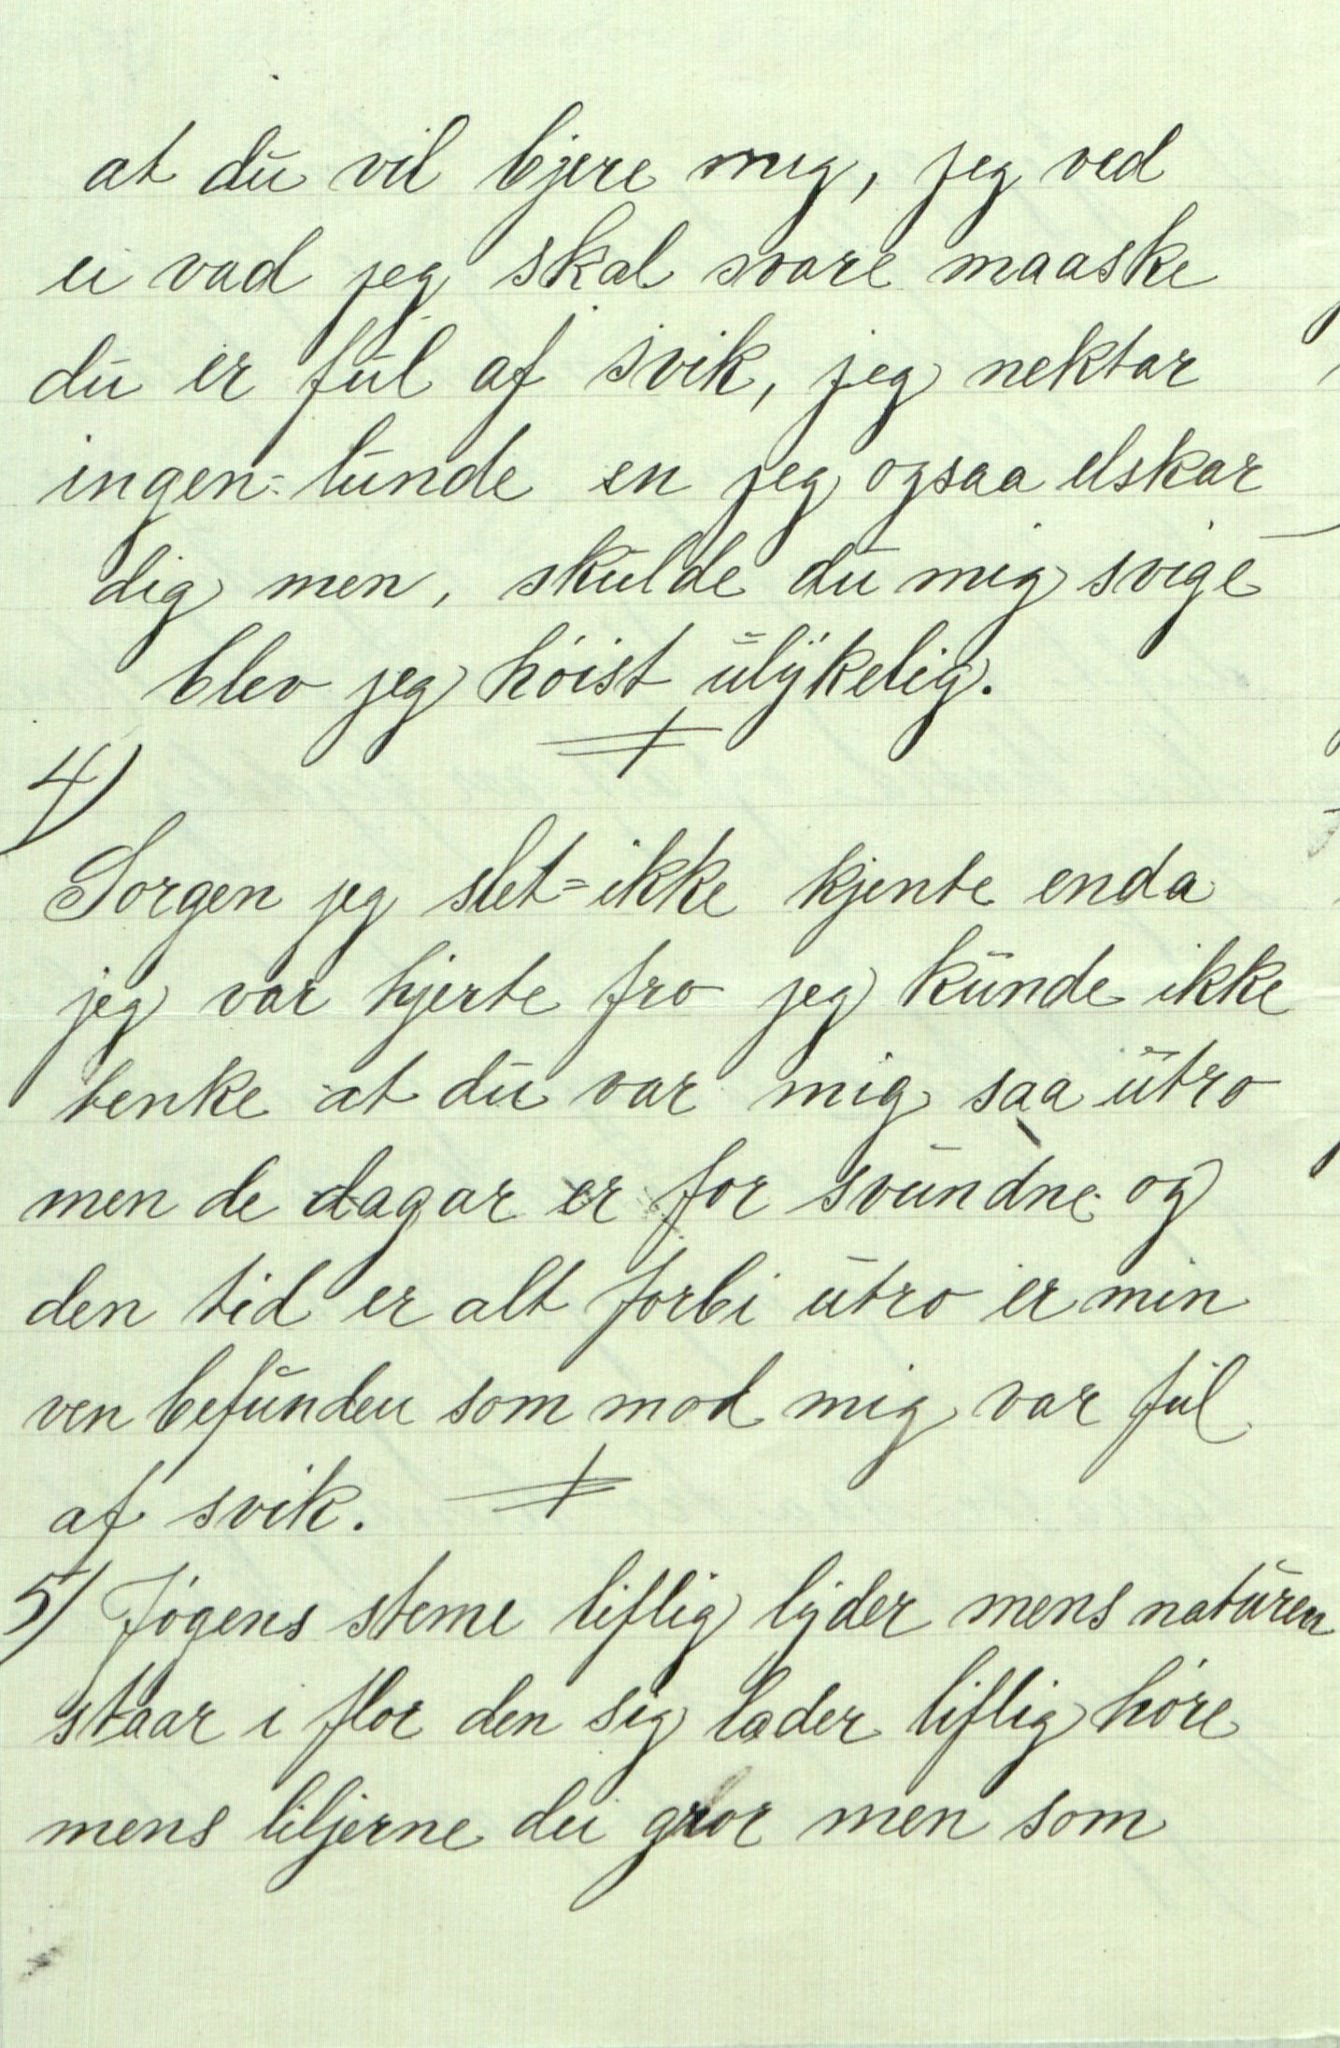 at du vil bjere mig, jeg ved
ei vad jeg skal svare maaske
du er ful af svik, jeg nektar
ingen-lunde en jeg ogsaa elskar
dig men, skulde du mig svige
blev jeg höist ulykelig.
4)
Sorgen jeg slet-ikke kjente enda
jeg var hjerte fro jeg kunde ikke
tenke at du var mig saa utro
men de dagar er for svundne og
den tid er alt forbi utro er min
ven befunden som mod mig var ful
af svik.
5) Jøgens steme liflig lyder mens naturen
staar i flor den sig lader liflig høre
mens liljerne dei gror men som